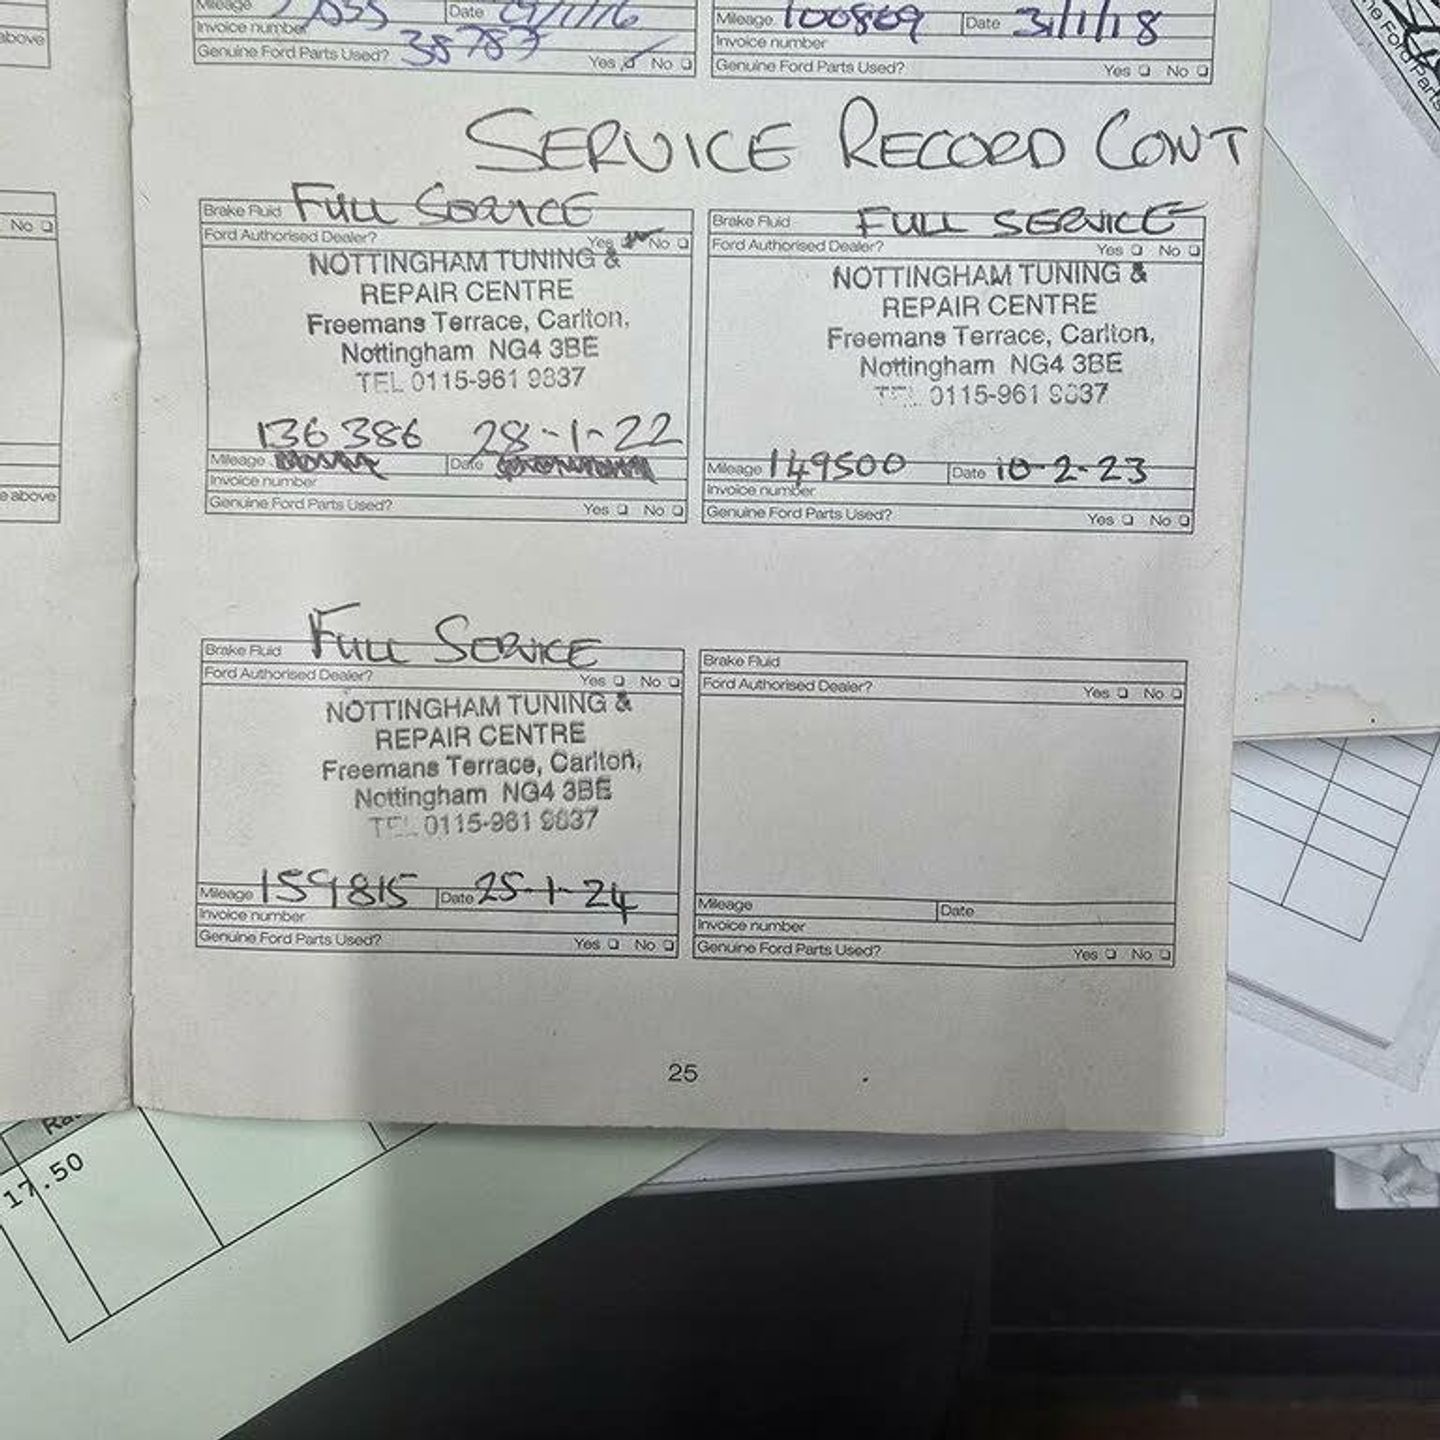 above
Mileage
Date
Invoice number
38783
Genuine Ford Parts Used? Yes No
Mileage 100869 Date 31/1/18
Invoice number
Genuine Ford Parts Used? Yes No
Ford Parts
SERVICE RECORD CONT
No
e above
Brake Fluid FULL SERVICE
Ford Authorised Dealer? Yes No
NOTTINGHAM TUNING &
REPAIR CENTRE
Freemans Terrace, Carlton,
Nottingham NG4 3BE
TEL 0115-961 9837
136386 28-1-22
Mileage Date
Invoice number
Genuine Ford Parts Used? Yes No
Brake Fluid FULL SERVICE
Ford Authorised Dealer? Yes No
NOTTINGHAM TUNING &
REPAIR CENTRE
Freemans Terrace, Carlton,
Nottingham NG4 3BE
TEL 0115-961 9837
Mileage 149500 Date 10-2-23
Invoice number
Genuine Ford Parts Used? Yes No
Brake Fluid FULL SERVICE
Ford Authorised Dealer? Yes No
NOTTINGHAM TUNING &
REPAIR CENTRE
Freemans Terrace, Carlton,
Nottingham NG4 3BE
TEL 0115-961 9837
Mileage 159815 Date 25-1-24
Invoice number
Genuine Ford Parts Used? Yes No
Brake Fluid
Ford Authorised Dealer? Yes No
Mileage Date
Invoice number
Genuine Ford Parts Used? Yes No
25
17.50